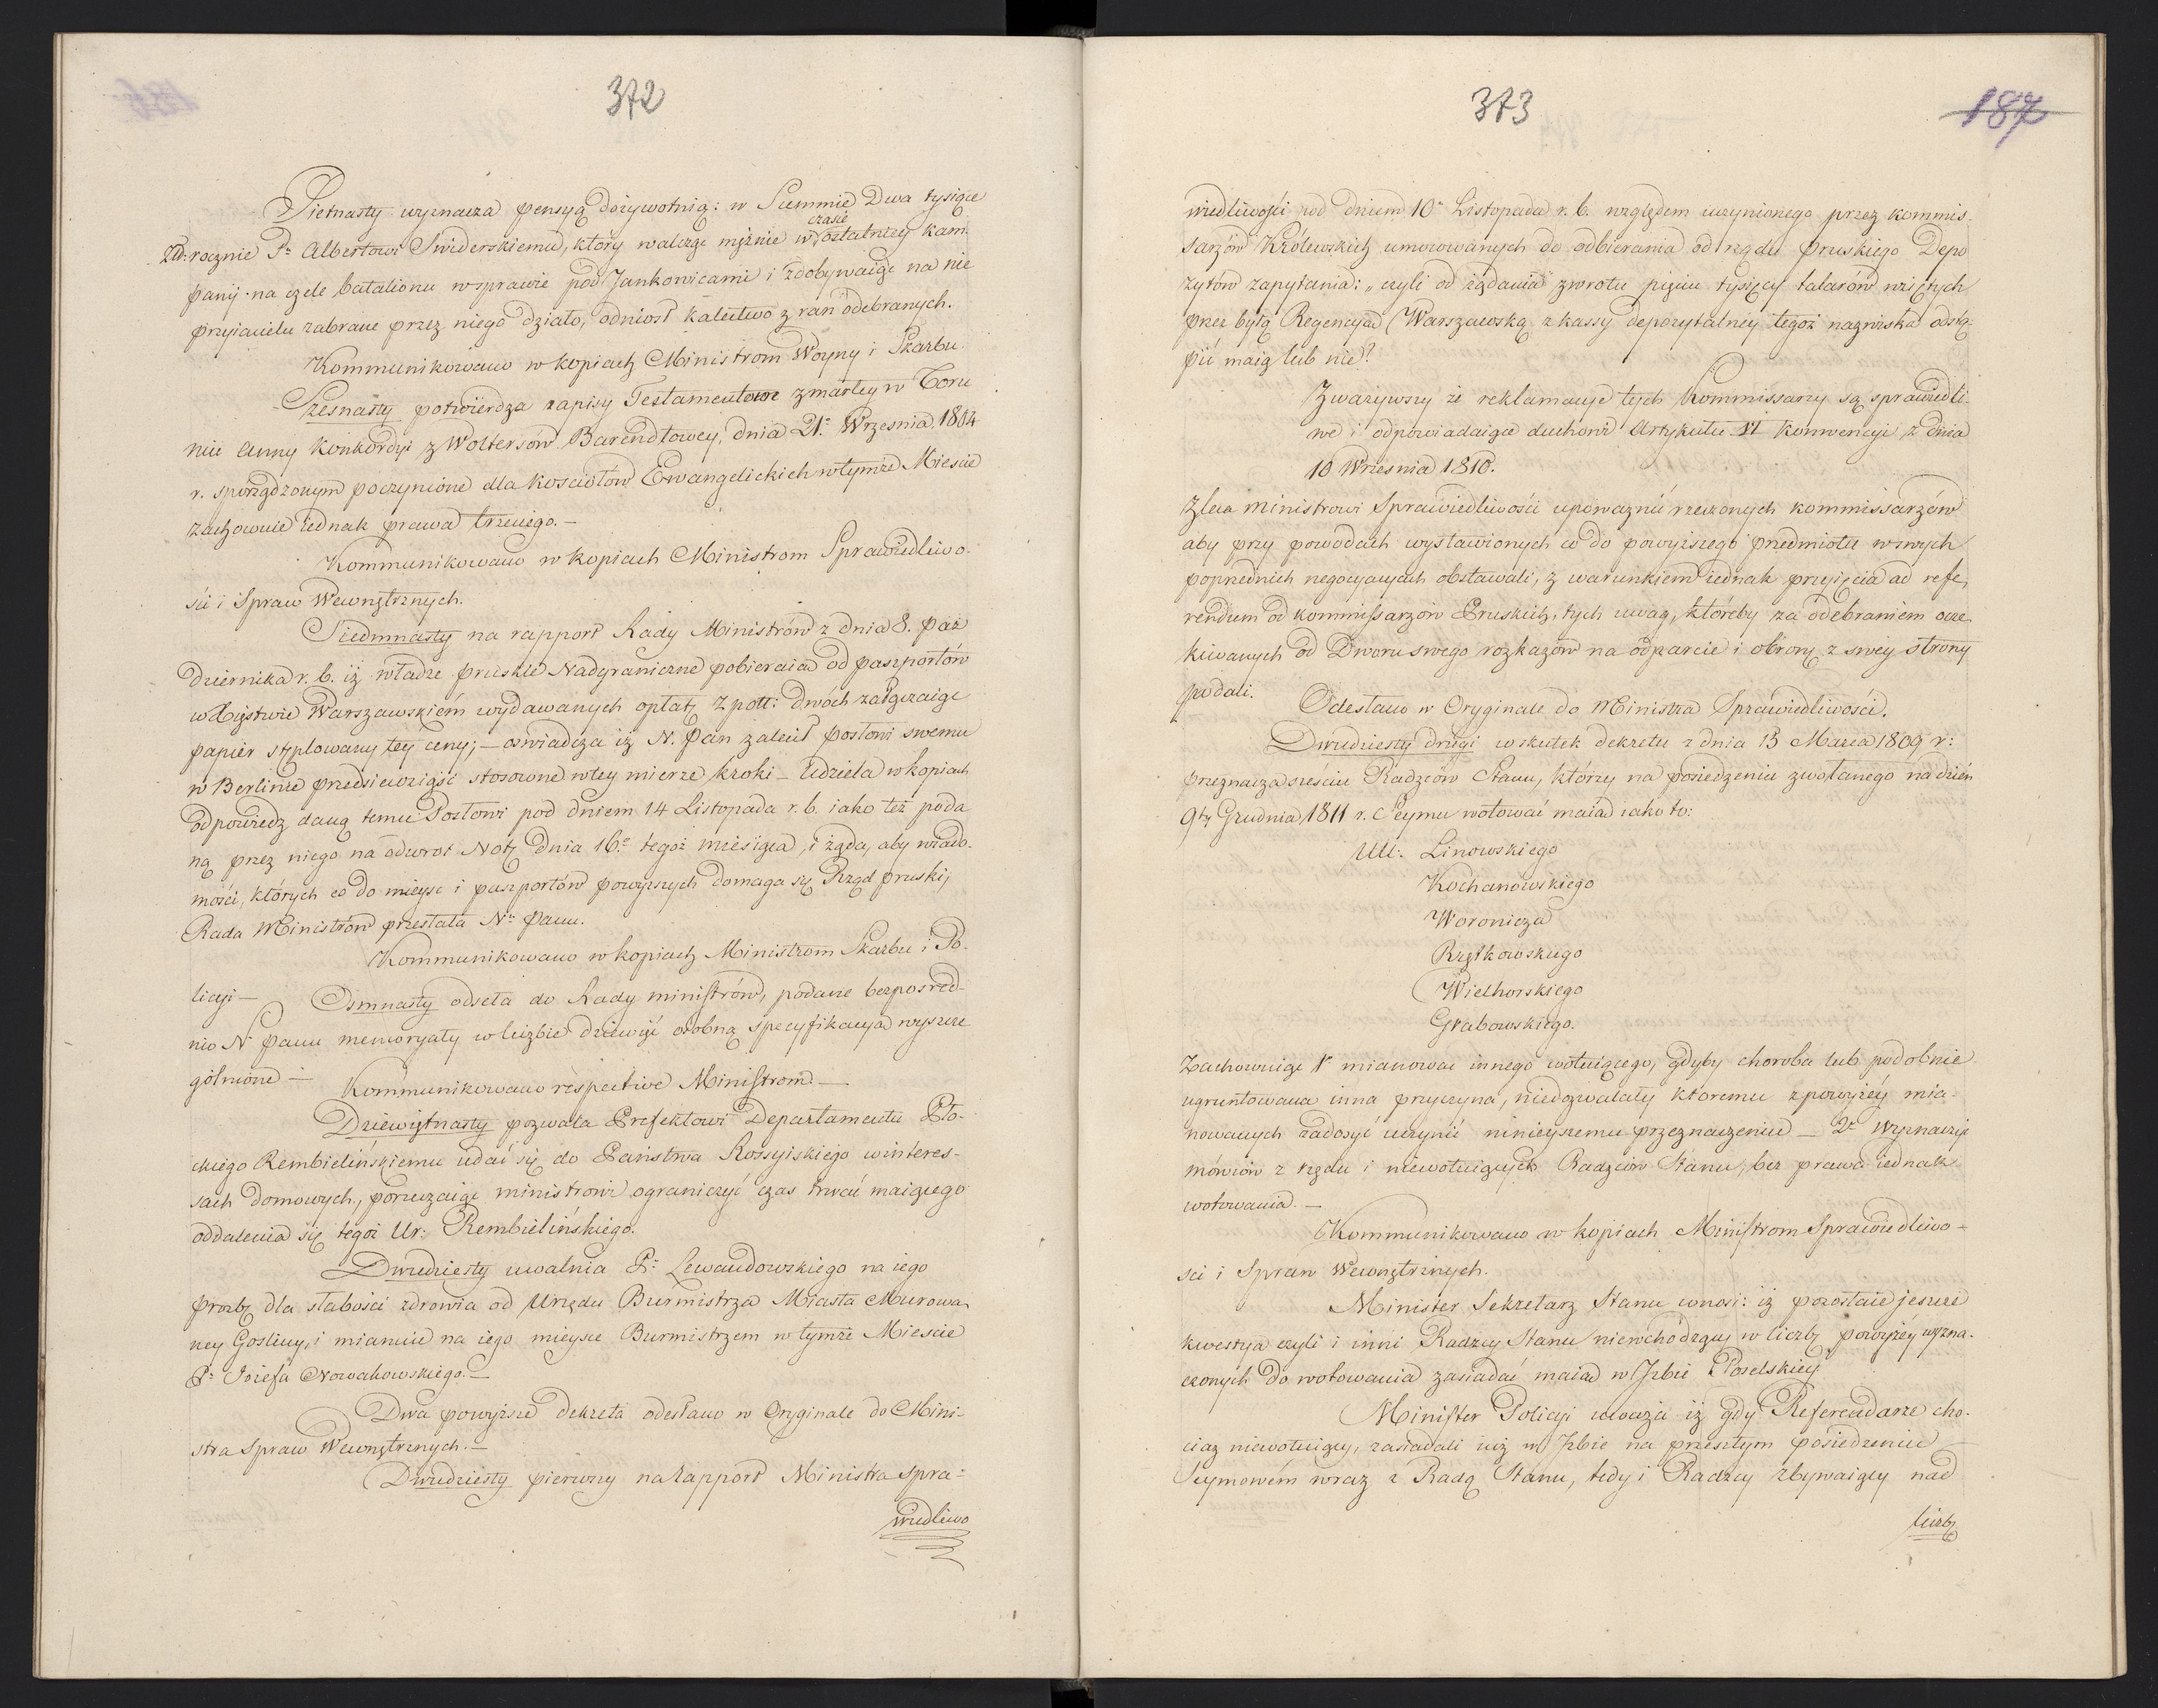 372
Pietnasty wyznacza pensyą dożywotnią: w Summie Dwa tysiące
Złł: rocznie P: Albertowi Swiderskiemu, który walcząc mężnie w czasie ostatniey kam-
panij na czele batalionu w sprawie pod Jankowicami i zdobywaiąc na nie
przyiacielu zabrane przez niego działo, odniosł kalectwo z ran odebranych.
Kommunikowano w kopiach Ministrom Woyny i Skarbu
Szesnasty potwierdza zapisy Testamentowe zmarłey w Toru
niu Anny Konkordyi z Woltersów Barendtowey, dnia 21. Wrzesnia 1804
r. sporządzonym poczynione dla kosciołów Ewangelickich w tymże Miescie
zachowuie iednak prawa trzeciego. —
Kommunikowano w kopiach Ministrom Sprawiedliwo-
ści i Spraw Wewnętrznych.
Siedmnasty na rapport Rady Ministrów z dnia 8. Paź
dziernika r. b. iż władze pruskie Nadgraniczne pobieraią od paszportów
w Xięstwie Warszawskiém wydawanych opłatę Zpoll: dwóch załączaiąc
papier stęplowany tey ceny; — oświadcza iż N. Pan zalecił posłowi swemu
w Berlinie przedsięwziąść stosowne w tey mierze kroki — Udziela w kopiach
odpowiedz daną temu Posłowi pod dniem 14 Listopada r. b. iako też poda
ną przez niego na odwrot Notę dnia 16go tegoż miesiąca, i żąda, aby wiado-
mości, których co do mieysc i paszportów powyższych domaga się Rząd pruski,
Rada Ministrów przesłała N: Panu.
Kommunikowano w kopiach Ministrom Skarbu i Po-
licyi —
Osmnasty odseła do Rady ministrów, podane bezposred-
nio N Panu memoryały w liczbie dziewięć osobną specyfikacyą wyszcze
gólnione —
Kommunikowano respective Ministrom —
Dziewiętnasty pozwala Prefektowi Departamentu Pło-
ckiego Rembielińskiemu udać się do Państwa Rossyiskiego w interes-
sach domowych, poruczaiąc ministrowi ograniczyć czas trwać maiącego
oddalenia się tegoż Ur: Rembielińskiego.
Dwudziesty uwalnia P: Lewandowskiego na iego
prozbę dla słabości zdrowia od Urzędu Burmistrza Miasta Murowa-
ney Gosliny, i mianuie na iego mieysce Burmistrzem w tymże Miescie
P: Jozefa Nowakowskiego. —
Dwa powyższe dekreta odesłano w Oryginale do Mini-
stra Spraw Wewnętrznych. —
Dwudziesty pierwszy na Rapport Ministra Spra-
wiedliwo
373
187
wiedliwości pod dniem 10 Listopada r. b. względem uczynionego przez kommis-
sarzów Królewskich umocowanych do odbierania od rządu pruskiego Depo
zytów zapytania: „czyli od żądania zwrotu pięciu tysięcy talarów wziętych
przez byłą Regencyą Warszawską z kassy depozytalney tegoż nazwiska odstą-
pić maią lub nie?
Zważywszy że reklamacye tych Kommissarzy są sprawiedli-
we i odpowiadaiące duchowi Artykułu VI Konwencyi z dnia
10 Wrzesnia 1810.
Zleca ministrowi Sprawiedliwości upoważnić rzeczonych kommissarzów
aby przy powodach wystawionych co do powyższego przedmiotu w swych
poprzednich negocyacyach obstawali, z warunkiem iednak przyięcia ad refe-
rendum od kommissarzów Pruskich, tych uwag, któreby za odebraniem ocze-
kiwanych od Dworu swego rozkazów na odparcie i obronę z swey strony
podali.
Odesłano w Oryginale do Ministra Sprawiedliwości.
Dwudziesty drugi w skutek dekretu z dnia 13 Marca 1809 r:
przeznacza sześciu Radzców Stanu, którzy na posiedzeniu zwołanego na dzień
9ty Grudnia 1811 r. Seymu wotować maią iako to:
UU: Linowskiego
Kochanowskiego
Woronicza
Rzętkowskiego
Wielhorskiego
Grabowskiego.
Zachowuiąc 1º mianować innego wotuiącego, gdyby choroba lub podobnie
ugruntowana inna przyczyna, niedozwalały któremu z powyżéy mia-
nowanych zadosyć uczynić ninieyszemu przeznaczeniu — 2º wyznaczyć
mówców z rządu i niewotuiących Radzców Stanu, bez prawa iednak
wotowania. —
Kommunikowano w kopiach Ministrom Sprawiedliwo-
sci i Spraw Wewnętrznych.
Minister Sekretarz Stanu wnosi: iż pozostaie jeszcze
kwestya czyli i inni Radzcy Stanu niewchodzący w liczbę powyżéy wyzna-
czonych do wotowania zasiadać maią w Izbie Poselskiey
Minister Policyi uważa iż gdy Referendarze cho-
ciaz niewotuiący, zasiadali iuż w Izbie na przeszłym posiedzeniu
Seymowém wraz z Radą Stanu, tedy i Radzcy zbywaiący nad
liczbę